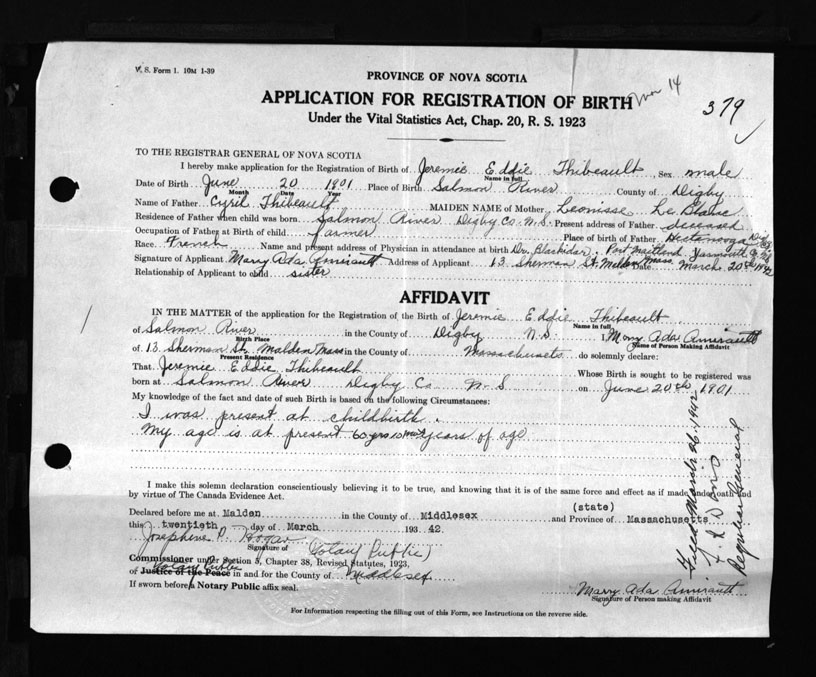 V. S. Form 1. 10M 1-39
PROVINCE OF NOVA SCOTIA
APPLICATION FOR REGISTRATION OF BIRTH
14
379
Under the Vital Statistics Act, Chap. 20, R. S. 1923
TO THE REGISTRAR GENERAL OF NOVA SCOTIA
I hereby make application for the Registration of Birth of Jeremie Eddie Thibeault, Sex male
Name in full
Date of Birth June 20 1901 Place of Birth Salmon River County of Digby
Month Date Year
Name of Father Cyril Thibeault MAIDEN NAME of Mother, Leonisse Le Blanc
Residence of Father when child was born Salmon River Digby Co N.S. Present address of Father deceased
Occupation of Father at Birth of child farmer Place of birth of Father
Race. French Name and present address of Physician in attendance at birth Dr. Port Maitland, Yarmouth
Signature of Applicant Mary Ada Amirault Address of Applicant 13 Sherman St. Malden Mass. Date March 20th 1942
Relationship of Applicant to child sister
AFFIDAVIT
IN THE MATTER of the application for the Registration of the Birth of Jeremie Eddie Thibeault
Name in full
of Salmon River in the County of Digby N.S. I, Mary Ada Amirault
Birth Place Name of Person Making Affidavit
of 13 Sherman St. Malden Mass in the County of Massachusets do solemnly declare:
Present Residence
That Jeremie Eddie Thibeault Whose Birth is sought to be registered was
born at Salmon River Digby Co N-S on June 20th 1901
My knowledge of the fact and date of such Birth is based on the following Circumstances:
I was present at childbirth.
My age is at present 60 yrs 10 mos years of age
I make this solemn declaration conscientiously believing it to be true, and knowing that it is of the same force and effect as if made under oath and
by virtue of The Canada Evidence Act.
(state)
Declared before me at Malden in the County of Middlesex and Province of Massachusetts
this twentieth day of March 193 42.
Josephine P. Hogan (Notary Public)
Signature of
Commissioner under Section 5, Chapter 38, Revised Statutes, 1923,
Notary Public
of Justice of the Peace in and for the County of Middlesex
If sworn before a Notary Public affix seal.
Mary Ada Amirault
Signature of Person making Affidavit
For Information respecting the filling out of this Form, see Instructions on the reverse side.
Filed March 26. 1942
Registrar General